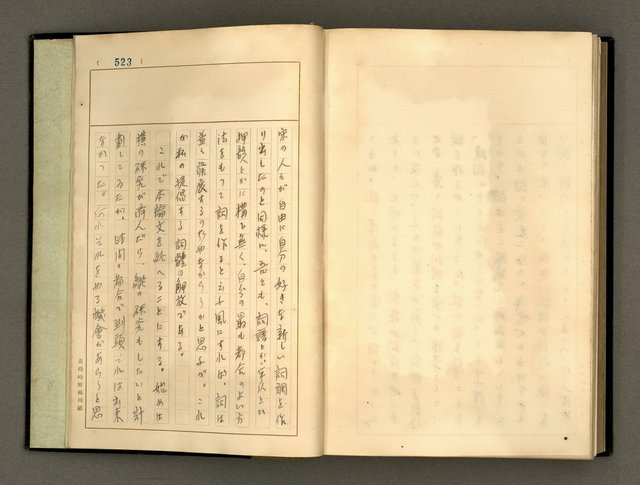 (523)
宋の人々が自由に自分の好きな新しい詞調を作
り出したのと同様に、吾々も、詞譜とか平仄とか
押韻とかに構はず、自分の最も都合のよい方
法をもつて詞を作ると云ふ風にすれば、詞は
益々発展するのぢやなからうかと思ふが、これ
が私の提倡する詞體の解放である。
これで本論文を終へることにする。始めは
横の研究が済んだら、縦の研究もしたいと計
劃してゐたが、時間の都合で到頭これは出来
なかつた。何れそれをやる機會があらうと思
黃得時原稿用紙